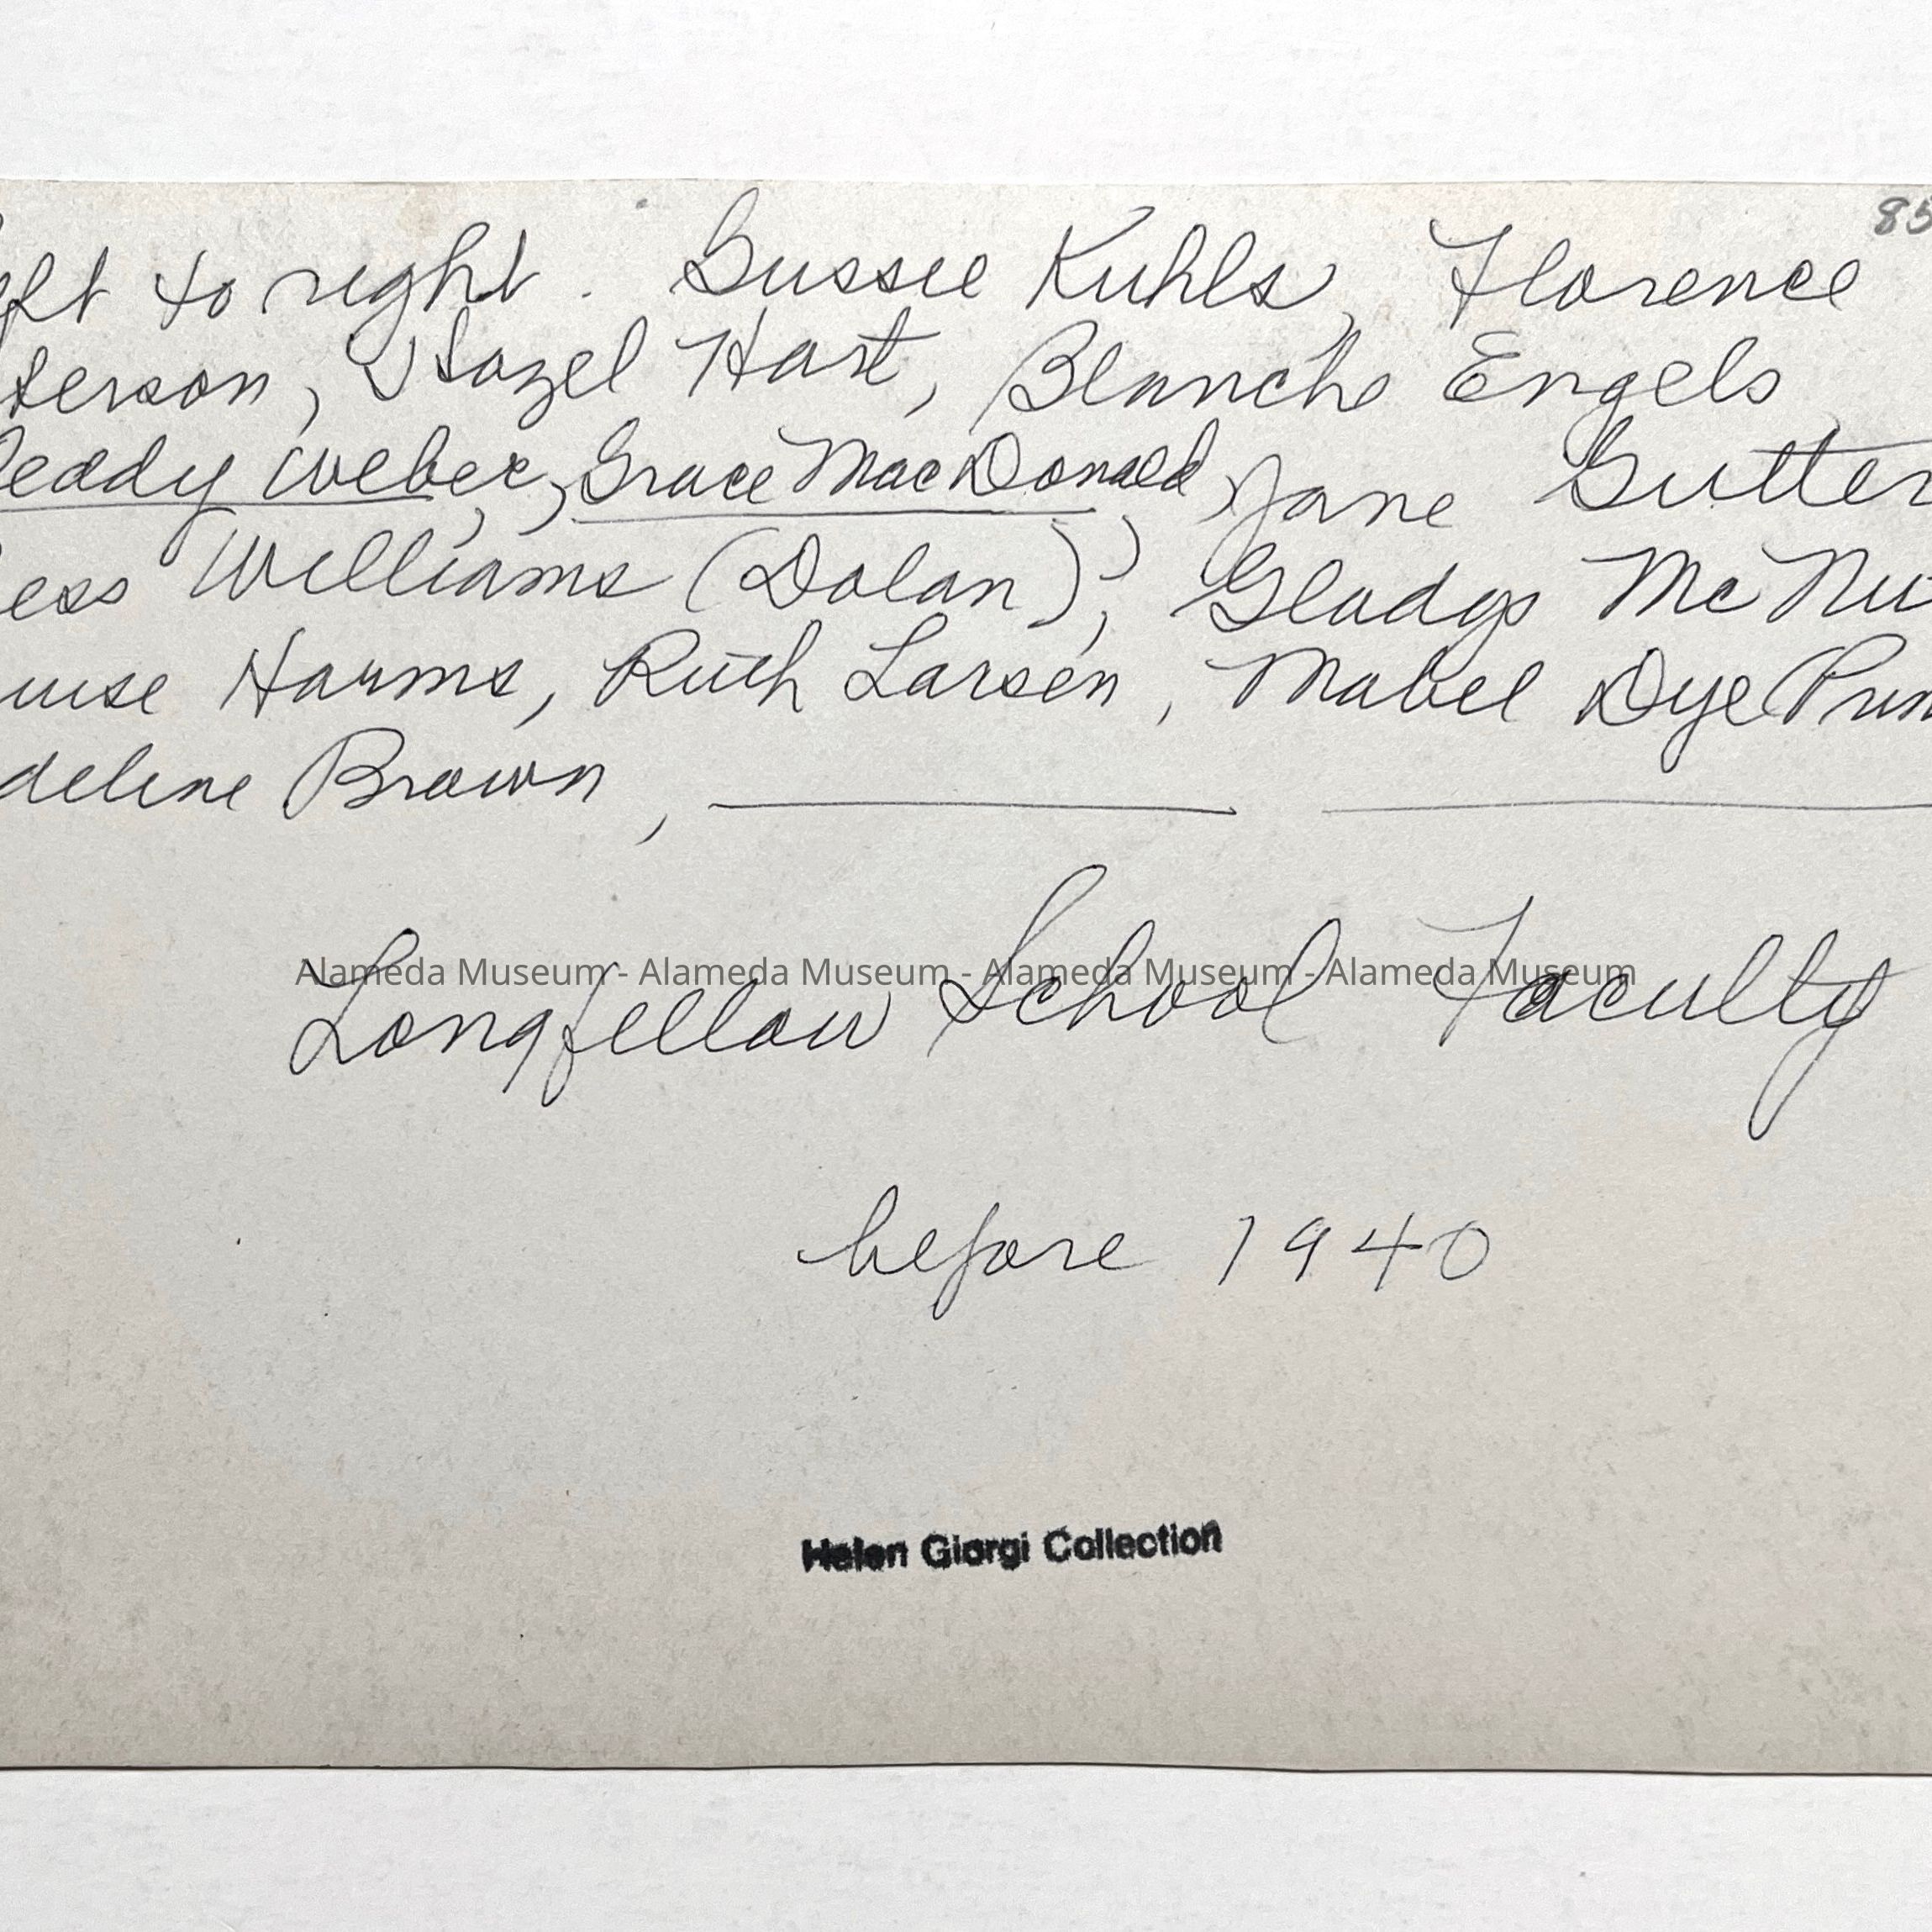 85
eft to right. Gussie Kuhls, Florence
terson, Hazel Hart, Blanche Engels
eddy Weber, Grace MacDonald, Jane Gutter
ess Williams (Dolan), Gladys McNu
uise Harms, Ruth Larsen, Mabel Dye Prim
deline Brown,
Longfellow School Faculty
Alameda Museum - Alameda Museum - Alameda Museum - Alameda Museum
before 1940
Helen Giorgi Collection